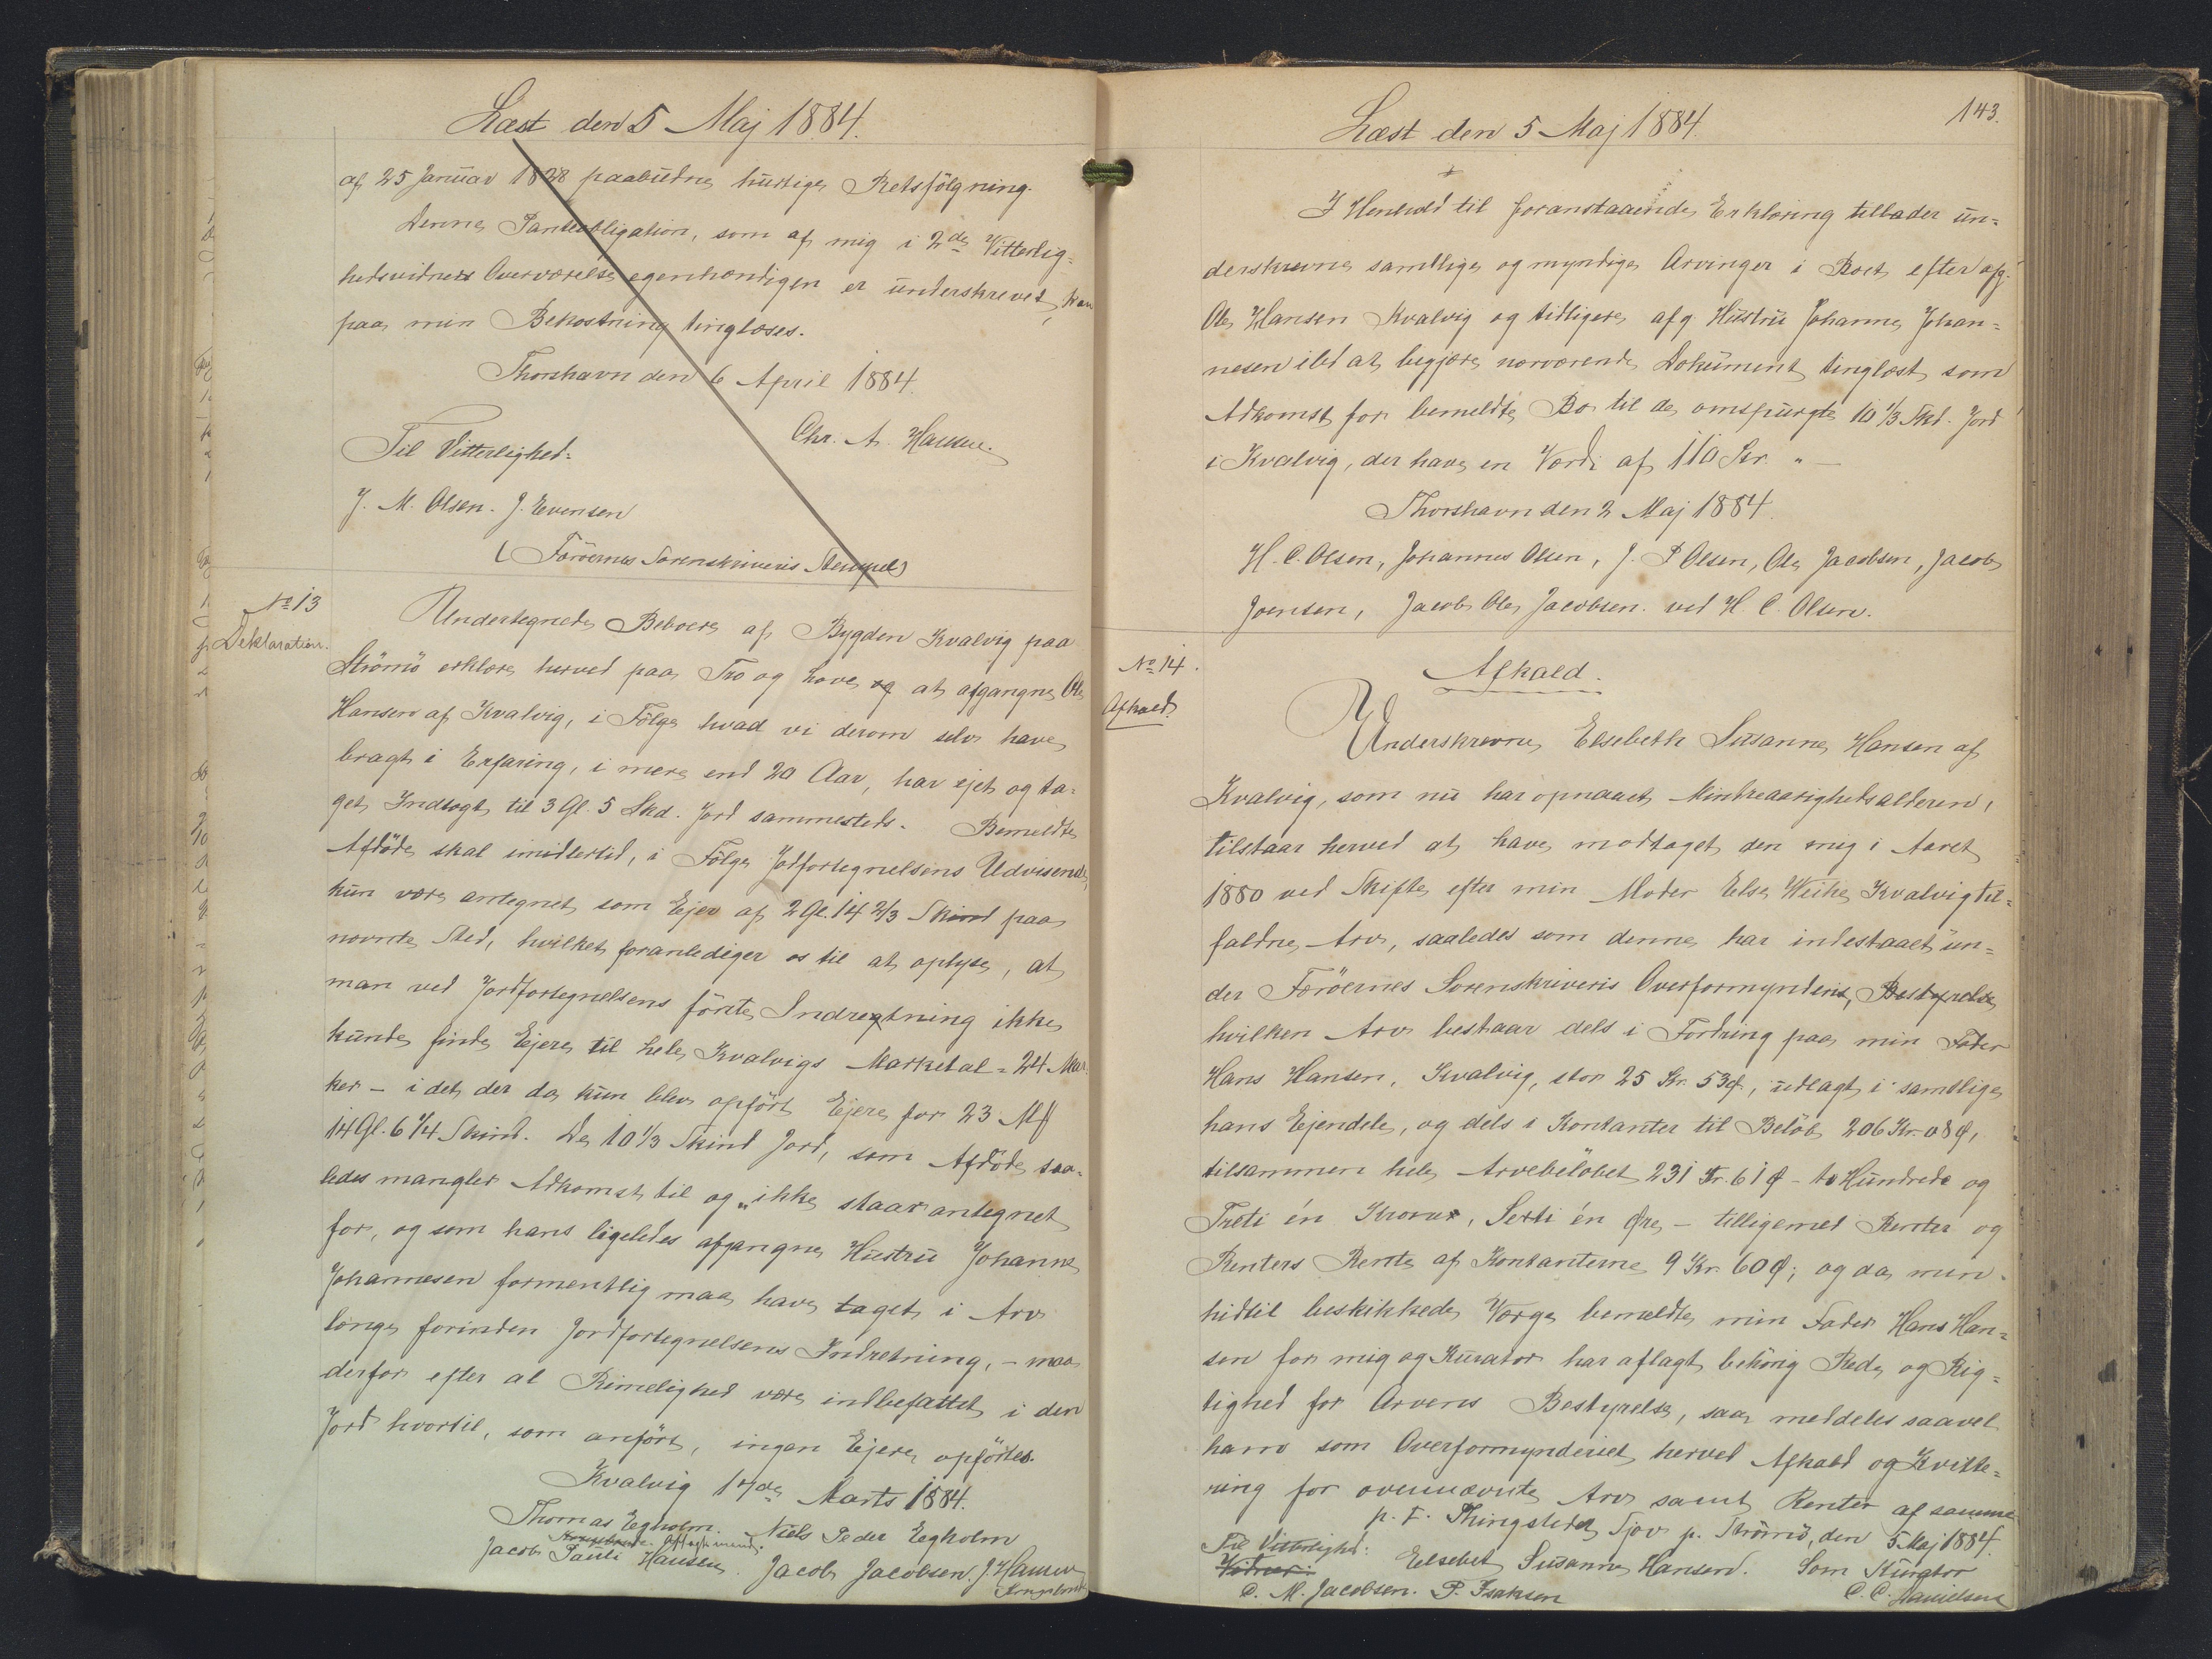 Læst den 5 Maj 1884.
af 25 Januar 1828 paabudne hurtige Retsfölgning.
Denne Panteobligation, som af mig i 2de Vitterlig=
hedsvidners Overværelse egenhændigen er underskrevet, kan
paa min Bekostning tinglæses.
Thorshavn den 6 April 1884.
Chr. A. Hansen.
Til Vitterlighed:
J. M. Olsen. J. Evensen
(Færöernes Sorenskriveris Stempel)
No 13
Deklaration.
Undertegnede Beboere af Bygden Kvalvig paa
Strömö erklære herved paa Tro og Love og at afgangne Ole
Hansen af Kvalvig, i Fölge hvad vi derom selv have
bragt i Erfaring, i mere end 20 Aar, har ejet og ta=
get Indtægt til 3 Gl. 5 Skd. Jord sammesteds. Bemeldte
Afdöde skal imidlertid, i Fölge Jordfortegnelsens Udvisende,
kun være antegnet som Ejer af 2 Gl. 14 2/3 Skind paa
nævnte Sted, hvilket foranlediger os til at oplyse, at
man ved Jordfortegnelsens förste Indretning ikke
kunde finde Ejere til hele Kvalvigs Marketal = 24 Mar=
ker – i det der da kun blev opfört Ejere for 23 Mk
14 Gl. 6 1/4 Skind. De 10 1/3 Skind Jord, som Afdöde saa=
ledes mangler Adkomst til og „ikke staar antegnet
for, og som hans ligeledes afgangne Hustru Johanne
Johannesen formentlig maa have taget i Arv
længe forinden Jordfortegnelsens Indretning, – maa
derfor efter al Rimelighed være indbefattet i den
Jord hvortil, som anfört, ingen Ejere opförtes.
Kvalvig 17de Marts 1884.
Thomas Egholm. Niels Peder Egholm
Kongsbonde. Aftægtsmand.
Jacob Pauli Hansen. Jacob Jacobsen. J. Hansen
Kongsbonde
Læst den 5 Maj 1884.
143.
I Henhold til foranstaaende Erklæring tillader un=
derskrevne samtlige og myndige Arvinger i Boet efter afg.
Ole Hansen Kvalvig og tidligere afg. Hustru Johanne Johan=
nesen ibd at begjære nærværende Dokument tinglæst som
Adkomst for bemeldte Bo til de omspurgte 10 1/3 Skd. Jord
i Kvalvig, der have en Værdi af 110 Kr. " –
Thorshavn den 2 Maj 1884.
H. C. Olsen, Johannes Olsen, J. P Olsen, Ole Jacobsen, Jacob
Joensen, Jacob Ole Jacobsen. ved H. C. Olsen.
No 14.
Afkald.
Afkald.
Underskrevne Elsebeth Susanne Hansen af
Kvalvig, som nu har opnaaet Mindreaarighedsalderen,
tilstaar herved at have modtaget den mig i Aaret
1880 ved Skifte efter min Moder Else Weihe Kvalvig til=
faldne Arv, saaledes som denne har indestaaet un=
der Færöernes Sorenskriveris Overformynderis Bestyrelse
hvilken Arv bestaar dels i Fordring paa min Fader
Hans Hansen, Kvalvig, stor 25 Kr. 53 Ø., udlagt i samtlige
hans Ejendele, og dels i Kontanter til Belöb 206 Kr. 08 Ø,
tilsammen hele Arvebelöbet 231 Kr. 61 Ø – to Hundrede og
Treti én Kroner, Sexti én Øre, – tilligemed Renter og
Renters Rente af Kontanterne 9 Kr. 60 Ø; og da min
hidtil beskikkede Værge bemeldte min Fader Hans Han=
sen for mig og Kurator har aflagt behörig Rede og Rig=
tighed for Arvens Bestyrelse, saa meddeles saavel
ham som Overformynderiet herved Afkald og Kvitte=
ring for ovennævnte Arv samt Renter af samme
p. t. Thingstedet Sjov p. Strömö, den 5 Maj 1884.
Til Vitterlighed: Elsebet Susanne Hansen. Som Kurator
Vidner: C. C. Danielsen
D. M. Jacobsen. P. Isaksen